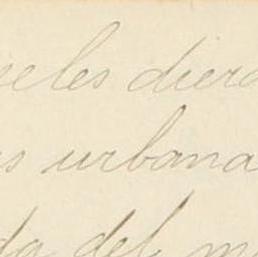 eles diero
s urbana
da del m